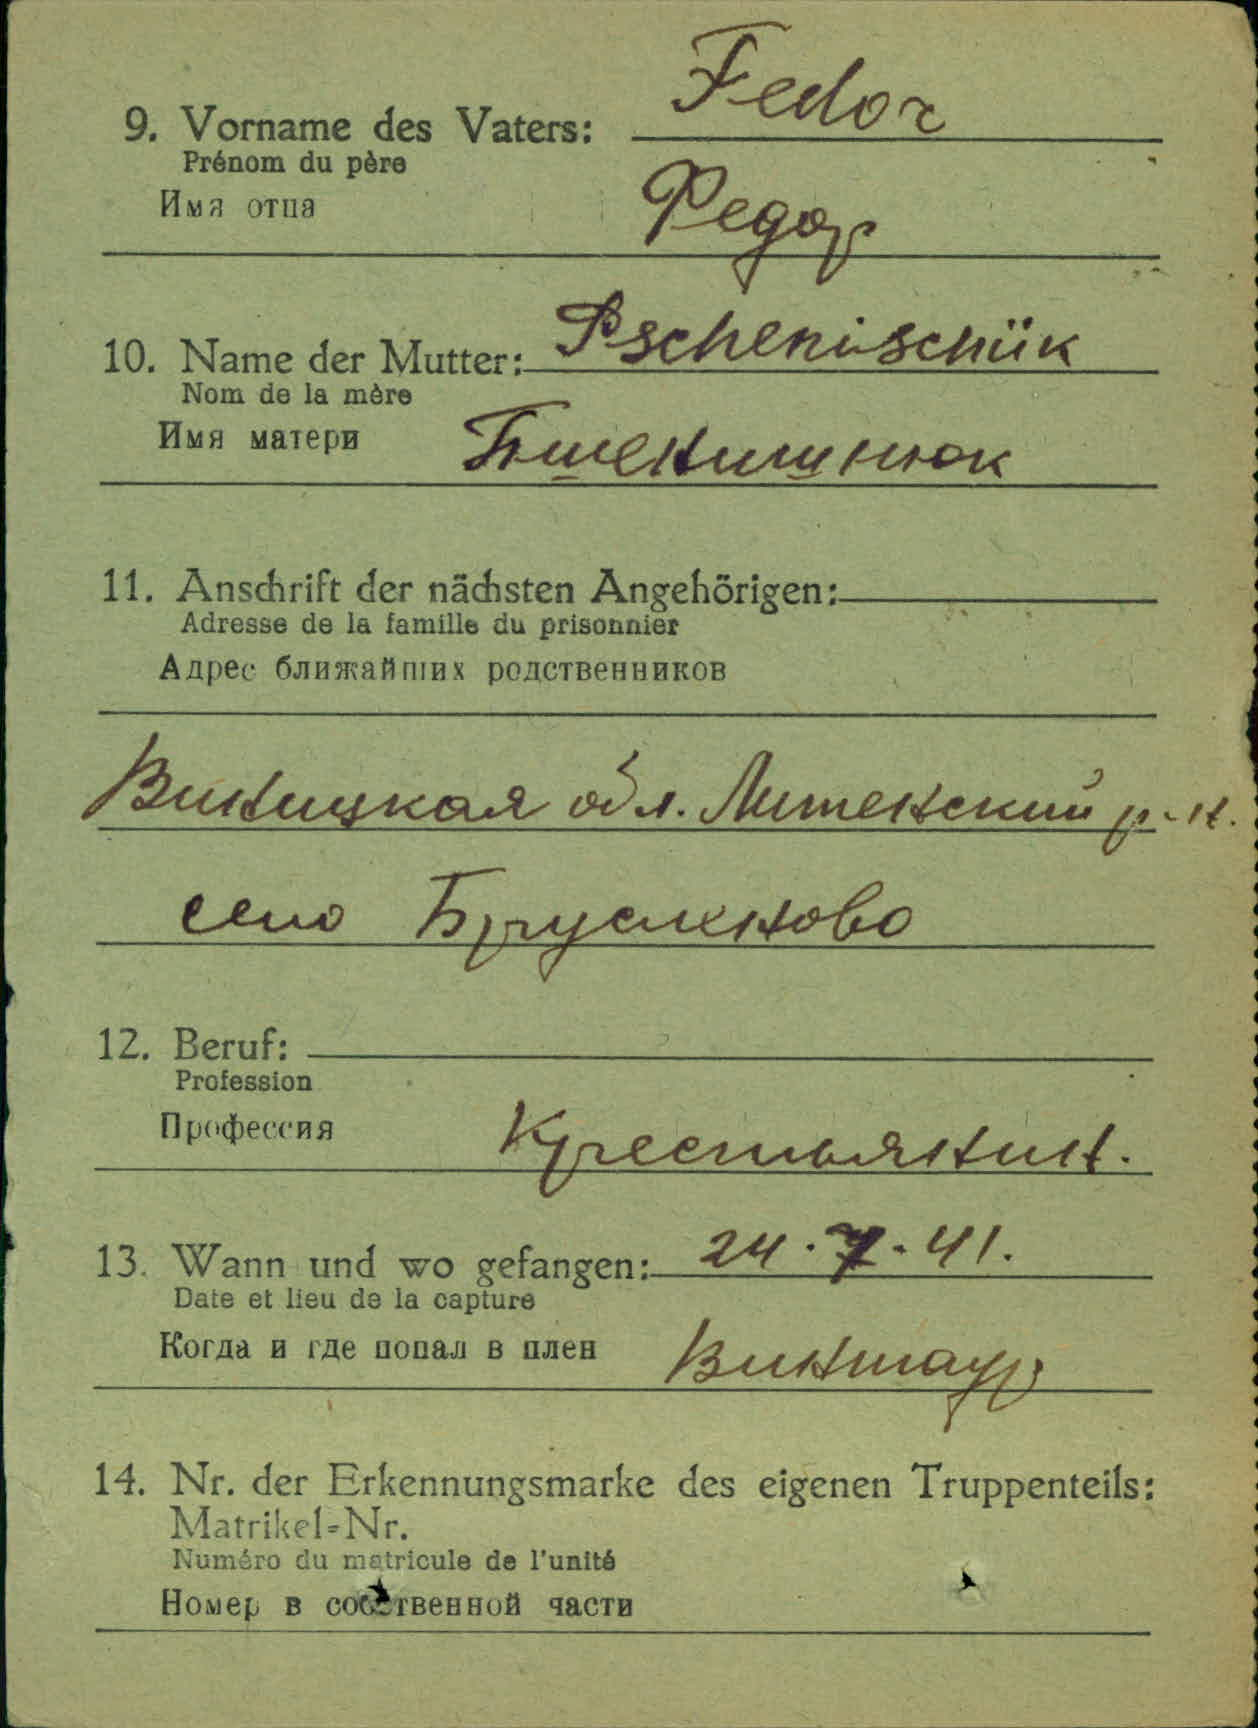 9. Vorname des Vaters: Fedor
Prénom du père
Имя отца
Федор
10. Name der Mutter: Pschenischük
Nom de la mère
Имя матери
Пшенишнюк
11. Anschrift der nächsten Angehörigen:
Adresse de la famille du prisonnier
Адрес ближайших родственников
Виницкая обл. Литенский р-н.
село Брусленово
12. Beruf:
Profession
Профессия
Крестьянин.
13. Wann und wo gefangen: 24.7.41.
Date et lieu de la capture
Когда и где попал в плен
14. Nr. der Erkennungsmarke des eigenen Truppenteils:
Matrikel-Nr.
Numéro du matricule de l'unité
Номер в собственной части